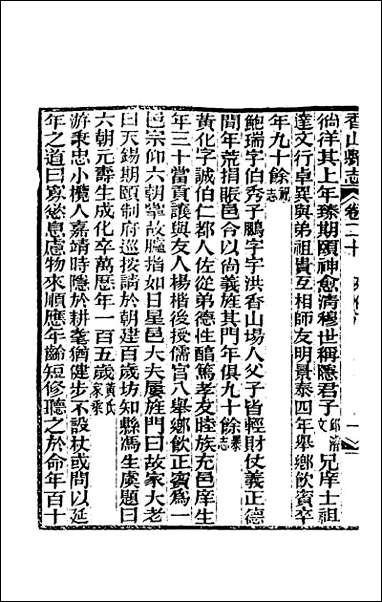 香山縣志 卷二十
徜徉其上年臻期頤神愈淸穆世稱隱君子文郎溶兄庠士祖
達文行卓異與弟祖貴互相師友明景泰四年舉鄉飮賓卒
年九十餘祝志
鮑瑞字伯秀子鵬字宇洪香山塲人父子皆輕財仗義正德
間年荒指賑邑令以尙義旌其門年俱九十餘暴志
黃化字誠伯仁都人佐從弟德性醕篤孝友睦族充邑庠生
年三十當貢讓與友人楊楷後授儒官八舉鄉飮正賓爲一
邑宗仰六朝華故腴指如日星邑大夫屢旌門曰故家大老
曰天錫期頤制府巡按請於朝建百歲坊知縣馮生虞題曰
六朝元壽生成化卒萬歷年一百五歲黃氏家乘
游秉忠小欖人嘉靖時隱於耕耄猶健步不設杖或問以延
年之道曰寡慾息慮物來順應年齡短修聽之於命年百十